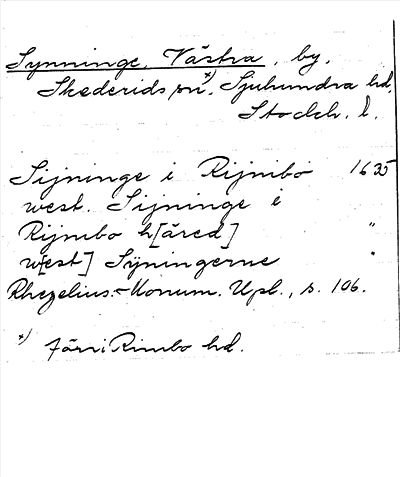 Synninge, Västra, by,
Skederids sn. x) Sjuhundra hd
Stockh. l.
Sijninge i Rijmbo 1635
west. Sijninge i
Rijmbo h[äred] "
w[est] Sÿningerne "
Rhezelius:- Monum. Upl., s. 106.
x) Förr i Rimbo hd.